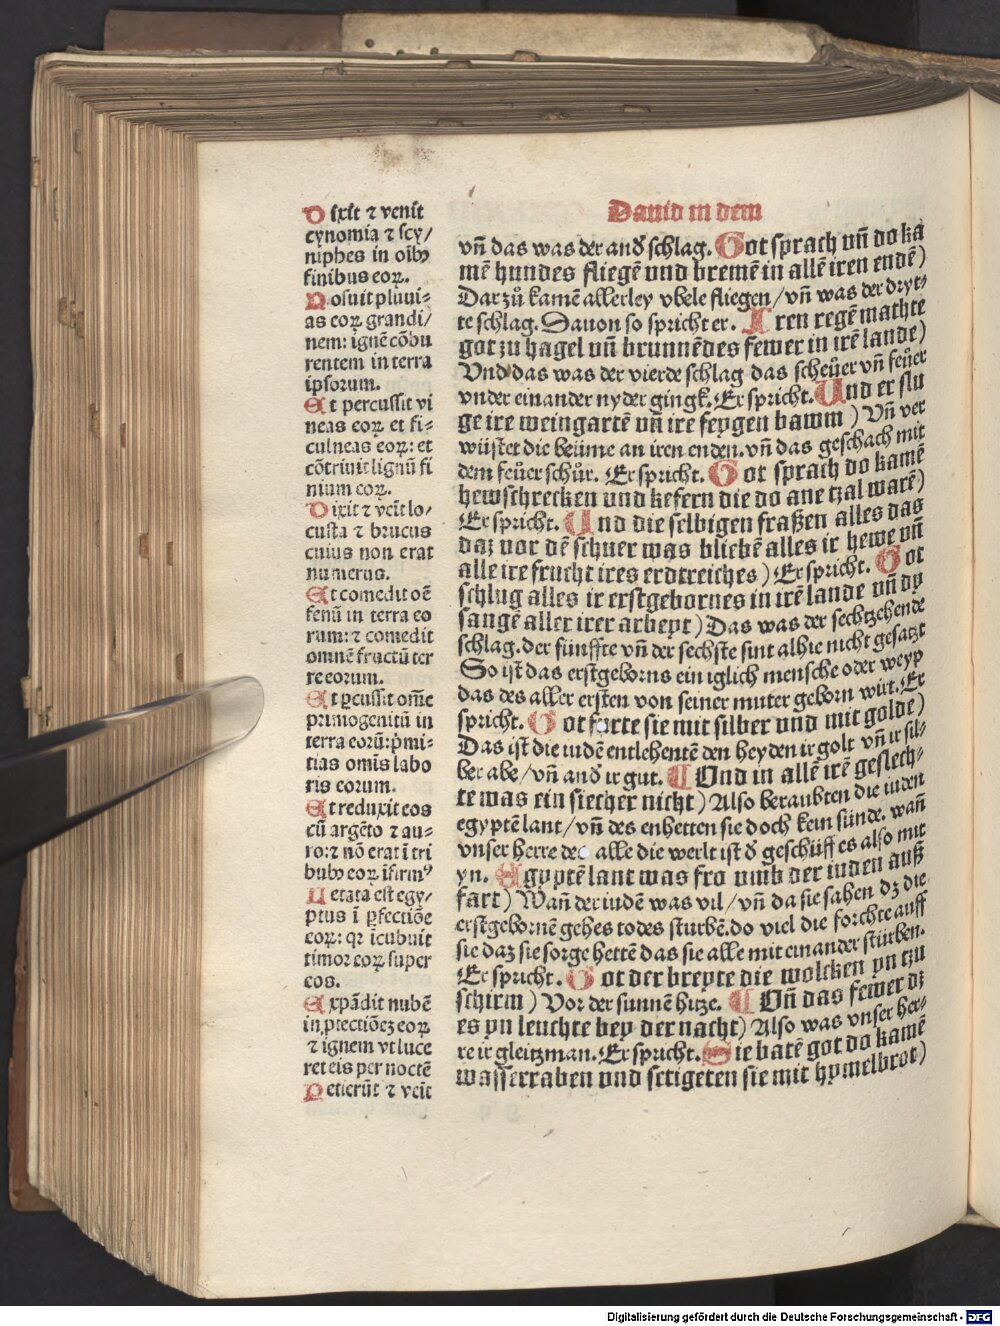 Dauid in dem
Dixit ⁊ venit
cynomia ⁊ scy/
niphes in oīb⁹
finibus eoꝝ.
Posuit pluui⸗
as eoꝝ grandi/
nem: ignē cōbu
rentem in terra
ipsorum.
Et percussit vi
neas eoꝝ et fi⸗
culneas eoꝝ: et
cōtriuit lignū fi
nium eoꝝ.
Dixit ⁊ veīt lo/
custa ⁊ brucus
cuius non erat
numerus.
Et comedit oē
fenū in terra eo
rum: ⁊ comedit
omnē fructū ter
re eorum.
Et ꝑcussit om̄e
primogenitū in
terra eorū: pͥmi⸗
tias omīs labo
ris eorum.
Et reduxit eos
cū argēto ⁊ au⸗
ro: ⁊ nō erat ī tri
bub⁹ eoꝝ īfirm⁹
Letata est egy/
ptus ī ꝓfectiōe
eoꝝ: qꝛ īcubuit
timor eoꝝ super
eos.
Expādit nubē
in ꝓtectiōeꝫ eoꝝ
⁊ ignem vt luce
ret eis per noctē
Petierūt ⁊ veīt
vn̄ das was der and̄ schlag. Got sprach vn̄ do ka
mē hundes fliegē vnd bremē in allē iren endē)
Dar zů kamē allerley vbele fliegen/vn̄ was der dryt⸗
te schlag. Dauon so spricht er. Iren regē machte
got zu hagel vn̄ brunnēdes fewer in irē lande)
Vnd das was der vierde schlag das scheüer vn̄ feüer
vnder einander nyder gingk. Er spricht. Und er slu
ge ire weingartē vn̄ ire feygen bawm) Vn̄ ver
wüstet die beüme an iren enden. vn̄ das geschach mit
dem feüer schůr. Er spricht. Got sprach do kamē
hewschrecken vnd kefern die do ane tzal warē)
Er spricht. Und die selbigen fraßen alles das
daz vor dē schuer was bliebē alles ir hewe vn̄
alle ire frucht ires erdtreiches) Er spricht. Got
schlug alles ir erstgebornes in irē lande vn̄ dy
sangē aller irer arbeyt) Das was der sechtzehende
schlag. der fünffte vn̄ der sechste sint alhie nicht gesatzt
So ist das erstgeborns ein iglich mensche oder weyp
das des aller ersten von seiner muter geborn wirt. Er
spricht. Got fürte sie mit silber vnd mit golde)
Das ist die iudē entlehentē den heyden ir golt vn̄ ir sil⸗
ber abe/vn̄ and̄ ir gut. Vnd in allē irē geslech⸗
te was ein siecher nicht) Also beraubten die iuden
egyptē lant/vn̄ des enhetten sie doch kein sünde. wan̄
vnser herre des alle die werlt ist d̄ geschüff es also mit
yn. Egyptē lant was fro vmb der iuden auß
fart) Wan̄ der iudē was vil/vn̄ da sie sahen dꝫ die
erstgebornē gehes todes sturbē. do viel die forchte auff
sie daz sie sorge hettē das sie alle mit einander stürben.
Er spricht. Got der breyte die wolcken yn tzu
schirm) Vor der sunnē hitze. Vn̄ das fewer dz
es yn leuchte bey der nacht) Also was vnser her⸗
re ir gleitzman. Er spricht. Sie batē got do kamē
wasserraben vnd setigeten sie mit hymelbrot)
Digitalisierung gefördert durch die Deutsche Forschungsgemeinschaft - DFG